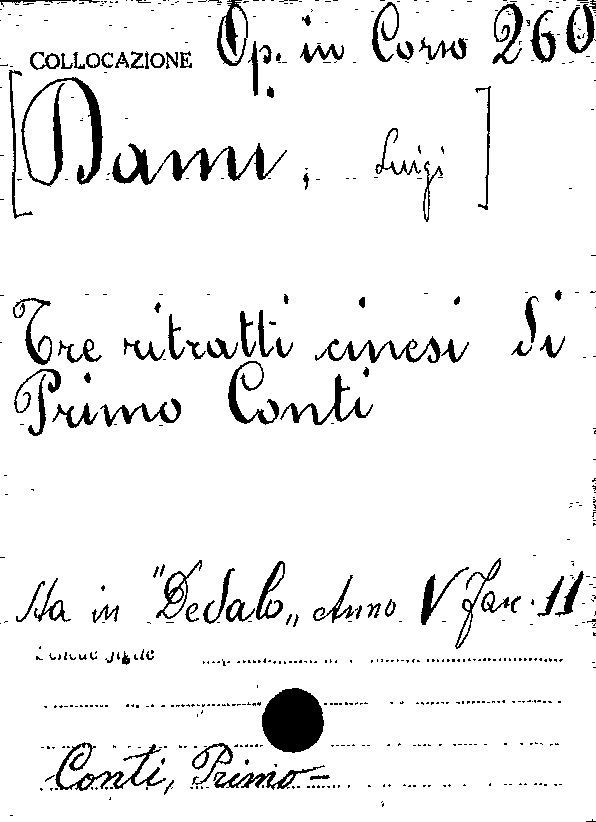 COLLOCAZIONE Op. in Corso 260
[Dami, Luigi]
Tre ritratti cinesi di
Primo Conti
Sta in "Dedalo„ Anno V Fasc. 11
Conti, Primo -